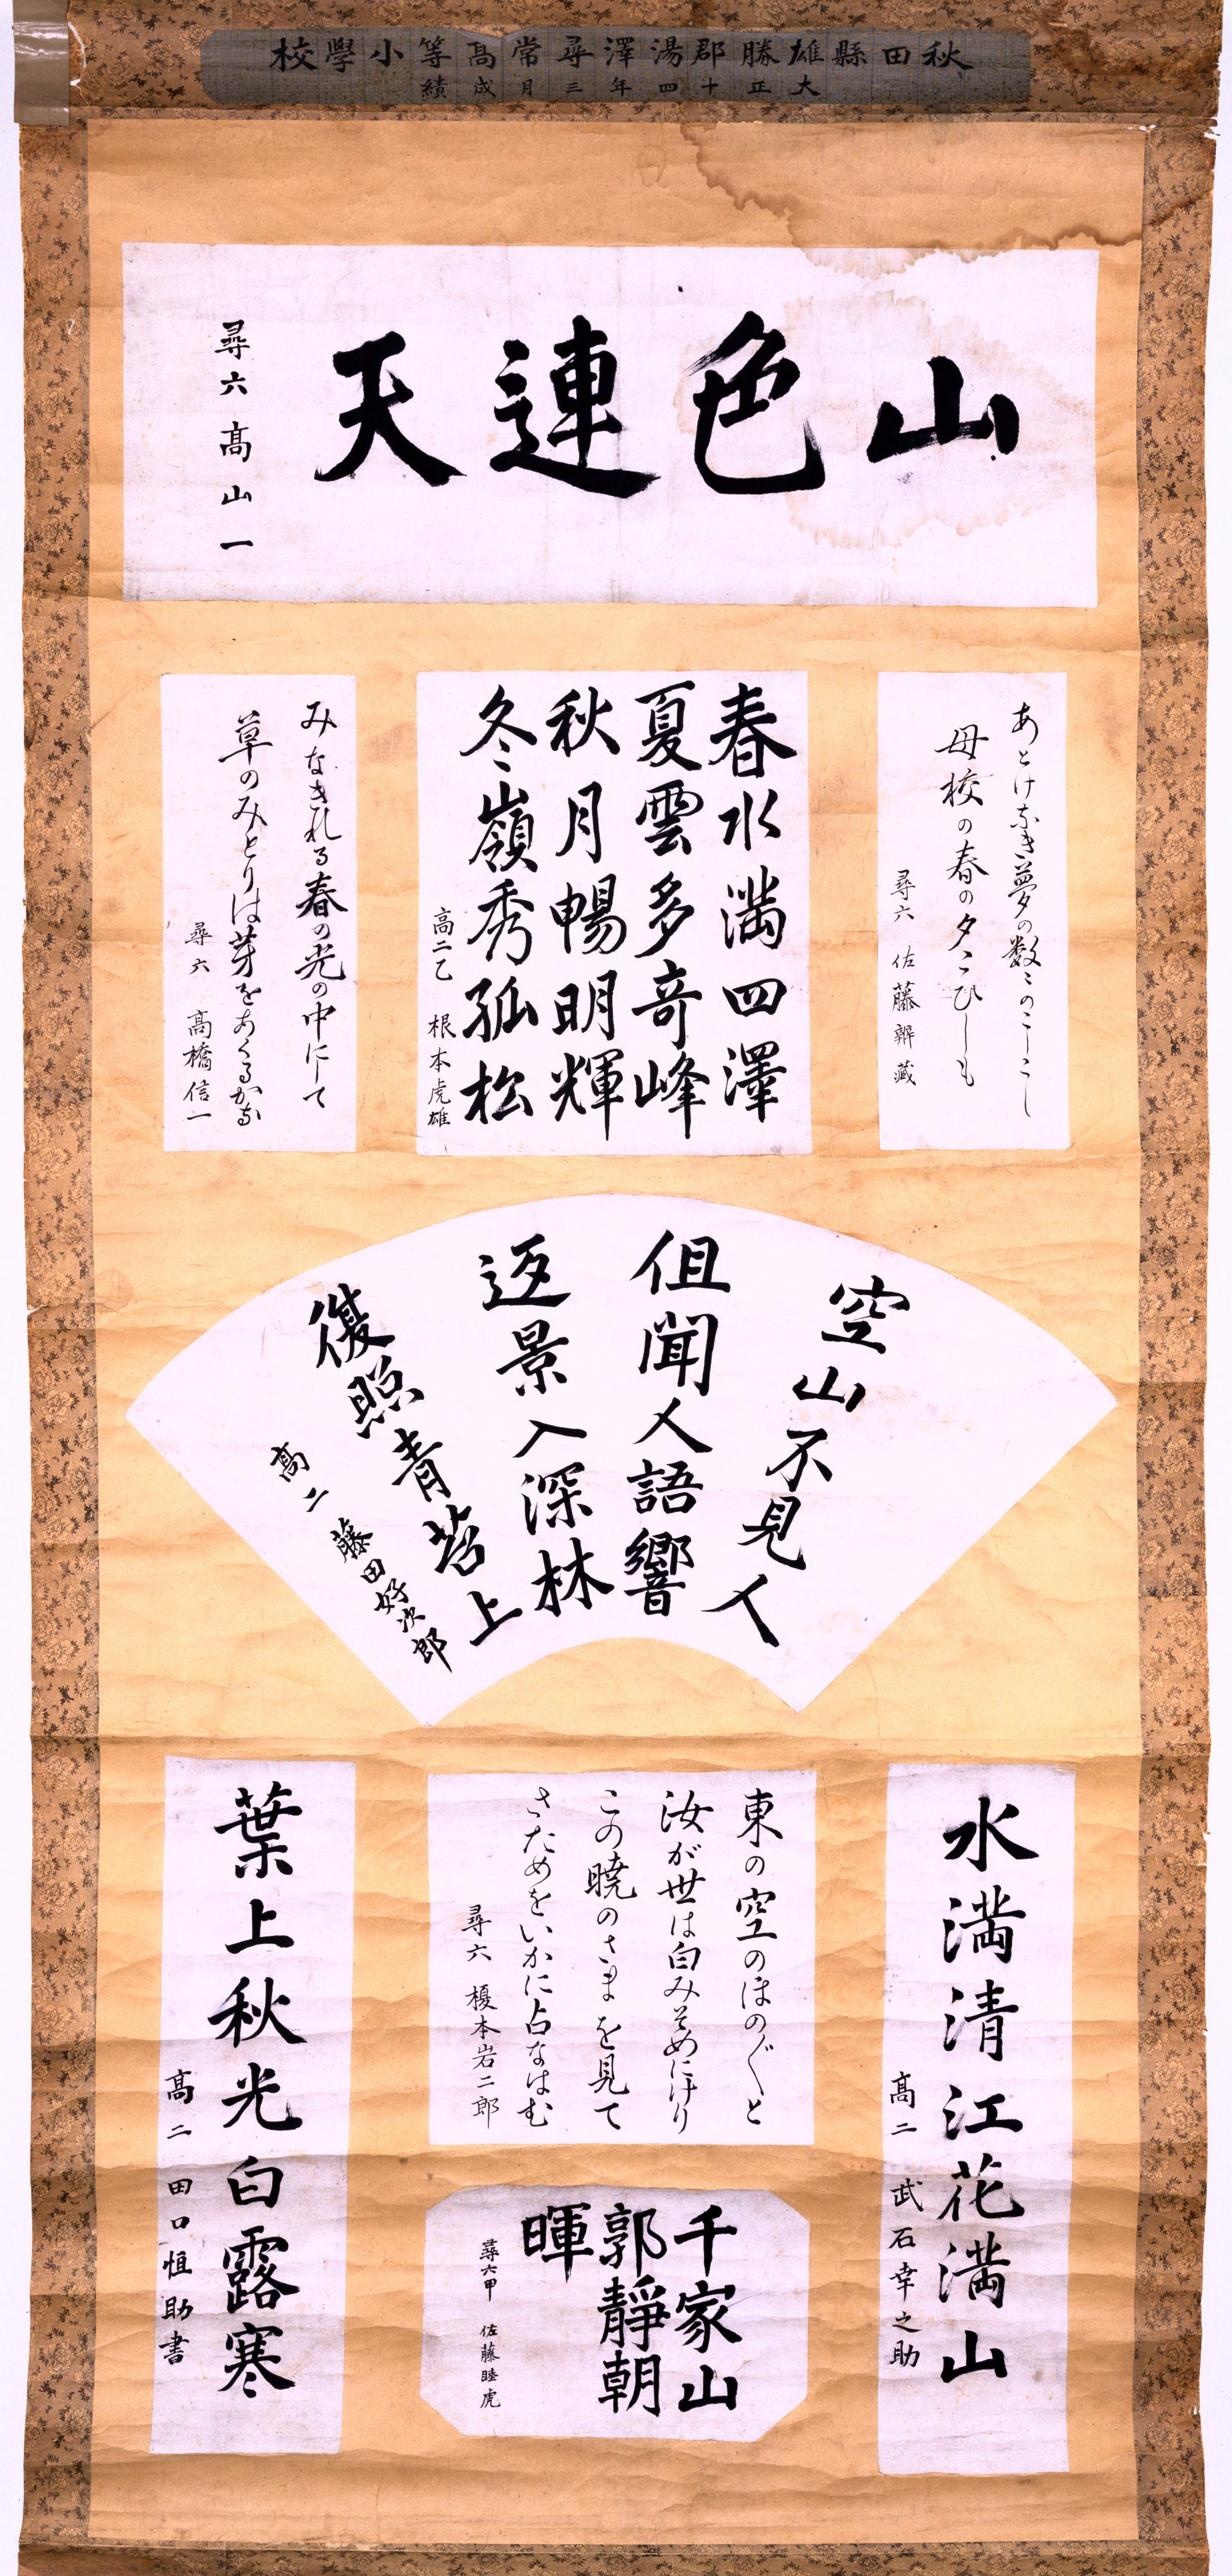 秋田縣雄勝郡湯澤尋常髙等小學校
大正十四年三月成績
山色連天
尋六髙山一
あとけなき夢の数〻のこしこし
母校の春の夕こひしも
尋六 佐藤辨藏
春水満四澤
夏雲多奇峰
秋月暢明輝
冬嶺秀孤松
高二乙 根本虎雄
みなぎれる春の光の中にして
草のみとりは芽をあくるかな
尋六 髙橋信一
空山不見人
但聞人語響
返景入深林
復照青苔上
髙二 藤田好次郎
水満清江花満山
髙二 武石幸之助
東の空のほの〴〵と
汝が世は白みそめにけり
この暁のさまを見て
さためをいかに占なはむ
尋六 榎本岩二郎
千家山
郭靜朝
暉
尋六甲 佐藤睦虎
葉上秋光白露寒
髙二 田口恒助書